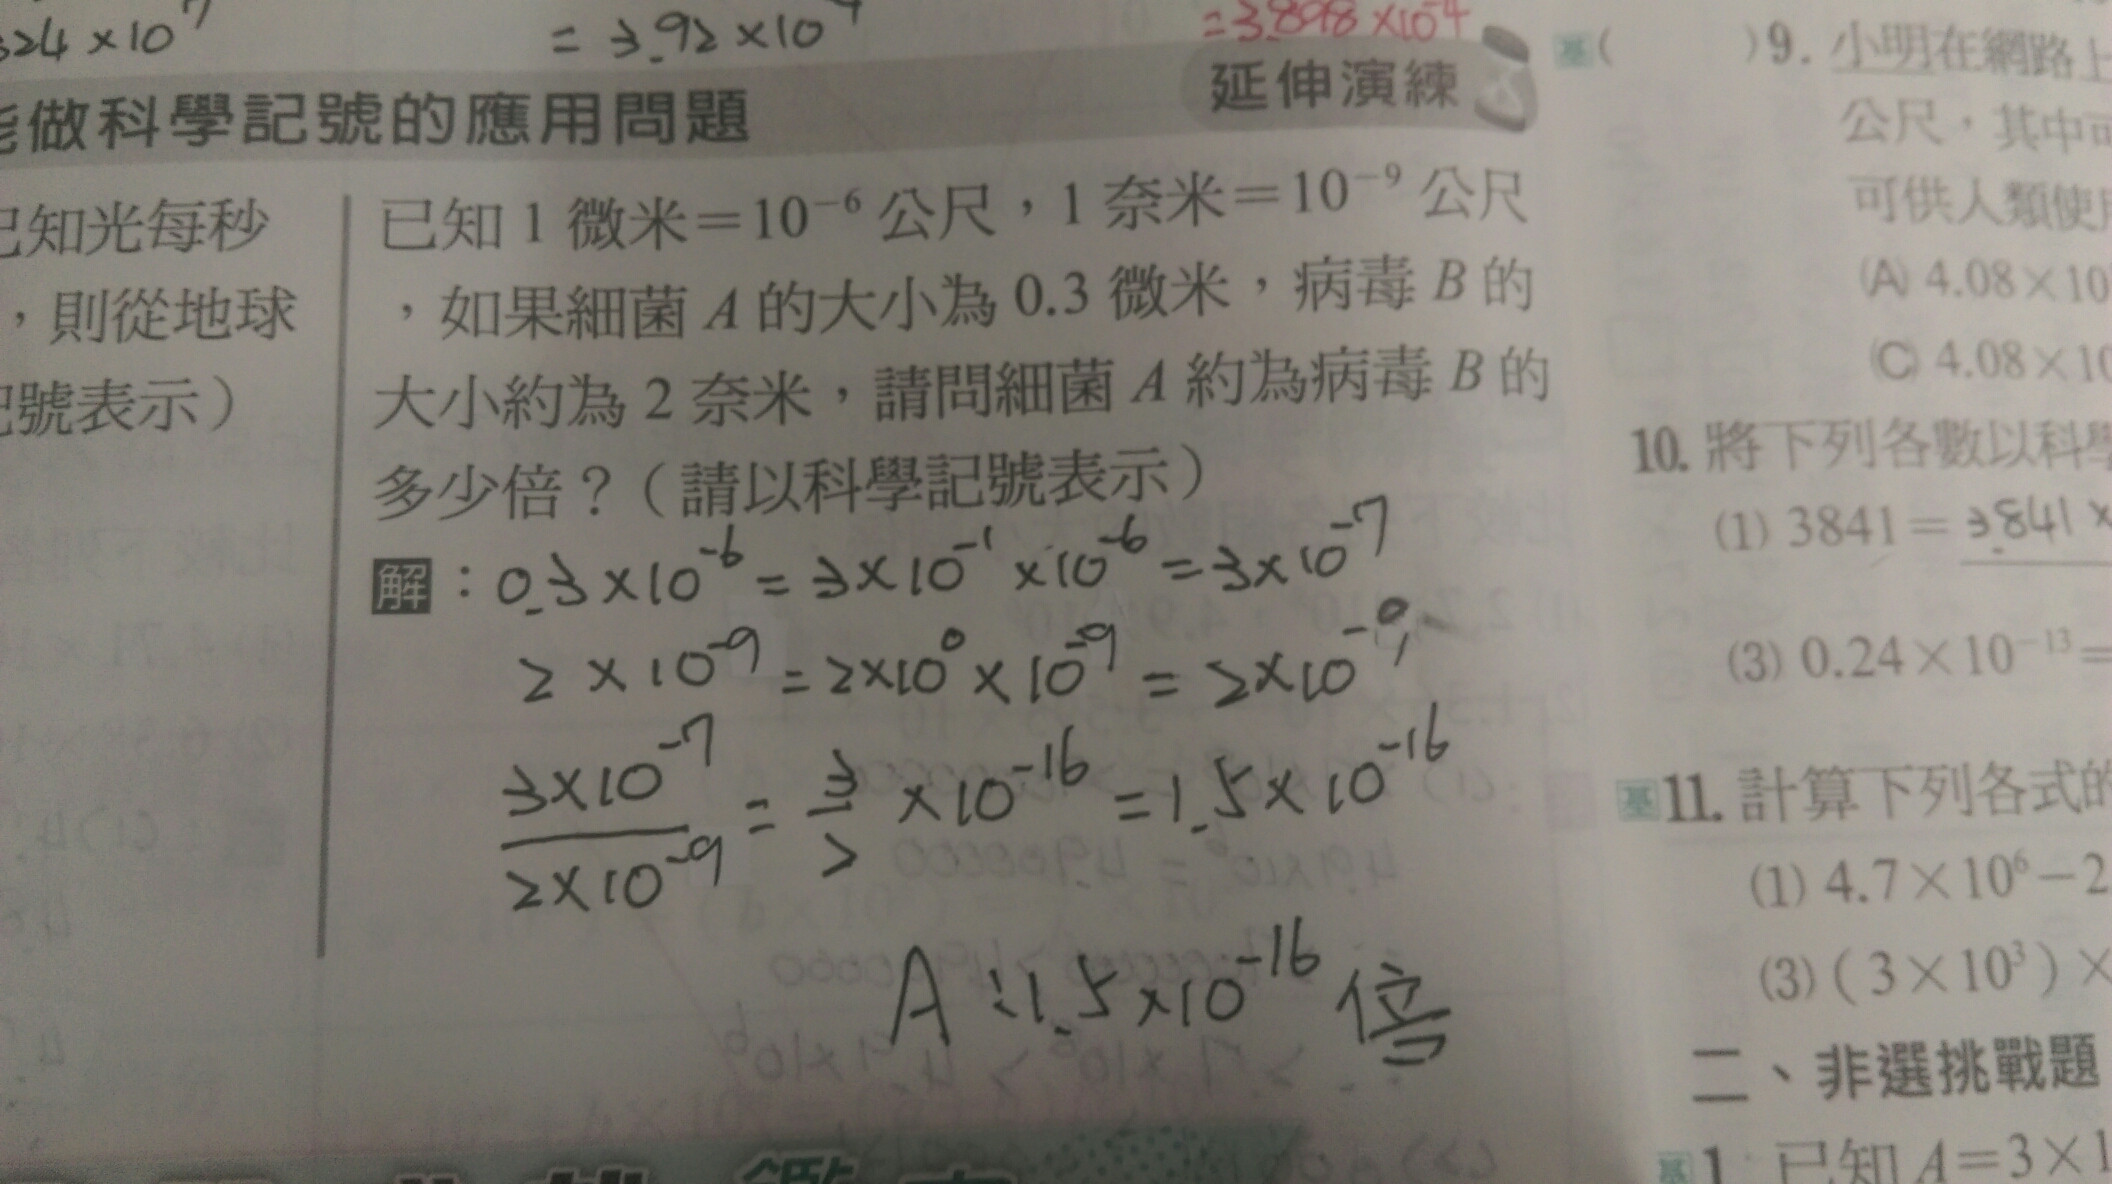 324×10⁷
= 3.92×10
=3.898×10⁻⁴
能做科學記號的應用問題
延伸演練
已知光每秒
，則從地球
記號表示）
已知 1 微米＝10⁻⁶ 公尺，1 奈米＝10⁻⁹ 公尺
，如果細菌 A 的大小為 0.3 微米，病毒 B 的
大小約為 2 奈米，請問細菌 A 約為病毒 B 的
多少倍？（請以科學記號表示）
解：0.3×10⁻⁶ = 3×10⁻¹ ×10⁻⁶ = 3×10⁻⁷
2 ×10⁻⁹ = 2×10⁰ ×10⁻⁹ = 2×10⁻⁹
3×10⁻⁷/2×10⁻⁹ = 3/2 ×10⁻¹⁶ = 1.5×10⁻¹⁶
A：1.5×10⁻¹⁶ 倍
基（　）9. 小明在網路上
公尺，其中可
可供人類使用
(A) 4.08×10
(C) 4.08×10
10. 將下列各數以科學
(1) 3841＝3.841×
(3) 0.24×10⁻¹³＝
基11. 計算下列各式的
(1) 4.7×10⁶－2
(3)（3×10³）×
二、非選挑戰題
基1. 已知 A＝3×1